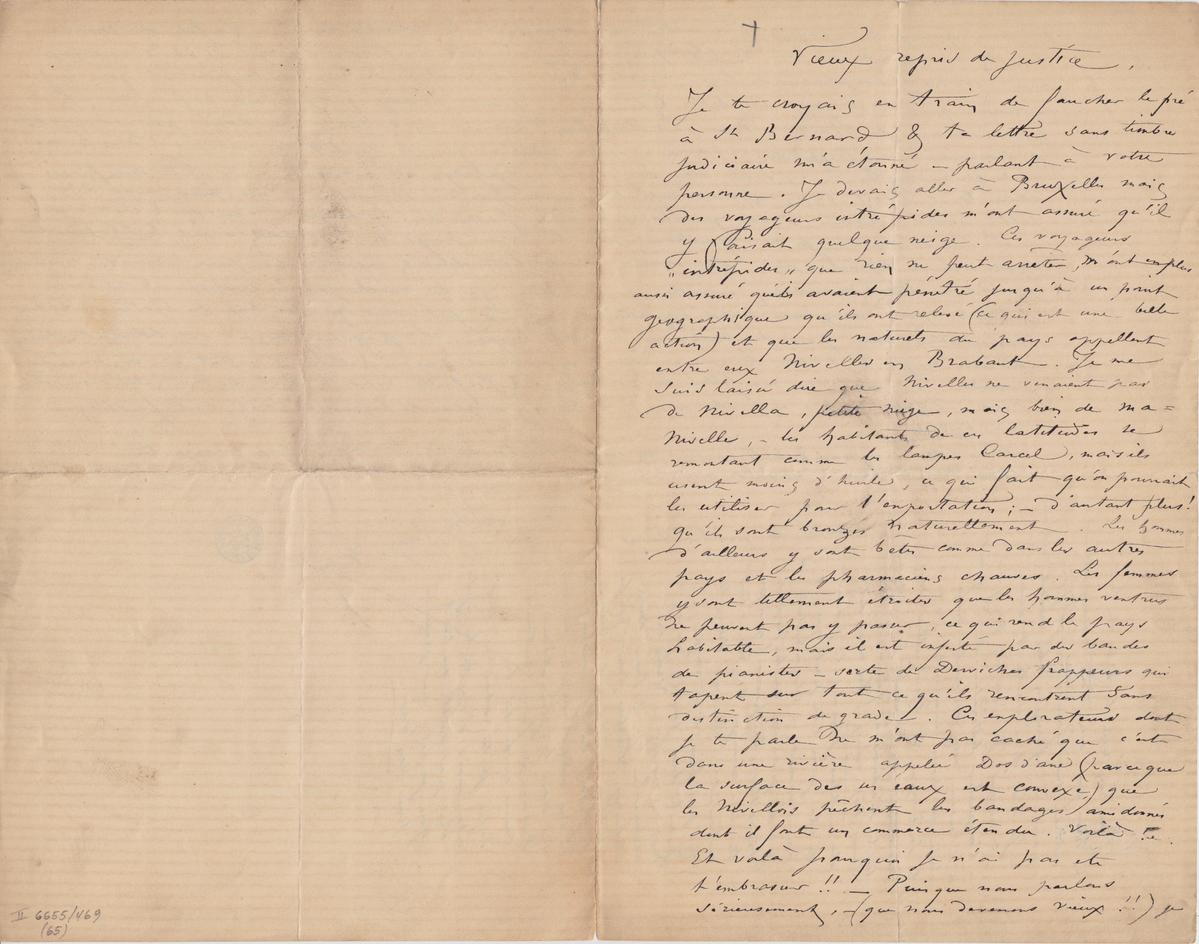 †
Vieux repris de justice,
Je te croyais en train de faucher le pré
à St Bernard & ta lettre sans timbre
judiciaire m'a étonné — parlant à votre
personne. Je devais aller à Bruxelles mais
des voyageurs intrépides m'ont assuré qu'il
y faisait quelque neige. Ces voyageurs
"intrépides" que rien ne peut arrêter, m'ont en plus
aussi assuré qu'ils avaient pénétré jusqu'à un point
géographique qu'ils ont relevé (ce qui est une belle
action) et que les naturels du pays appellent
entre eux Nivelles en Brabant. Je me
suis laissé dire que Nivelles ne venaient pas
de Nivella, petite neige, mais bien de ma=
Nivelle, — les habitants de ces latitudes se
remontant comme les lampes Carcel, mais ils
usent moins d'huile, ce qui fait qu'on pourrait
les utiliser pour l'exportation; — d'autant plus!
qu'ils sont bronzés naturellement. Les hommes
d'ailleurs y sont bêtes comme dans les autres
pays et les pharmaciens chauves. Les femmes
y sont tellement étroites que les hommes ventrus
ne peuvent pas y passer, ce qui rend le pays
habitable, mais il est infesté par des bandes
de pianistes — sorte de Derviches frappeurs qui
tapent sur tout ce qu'ils rencontrent sans
distinction de grade. Ces explorateurs dont
je te parle ne m'ont pas caché que c'est
dans une rivière appelée Dos d'ane (parceque
la surface des ses eaux est convexe) que
les Nivellois pêchent les bandages amidonnés
dont il font un commerce étendu. Voilà
Et voilà pourquoi je n'ai pas été
t'embrasser!! — Puisque nous parlons
sérieusement, — (que nous devenons vieux!!) je
II 6655/469
(65)